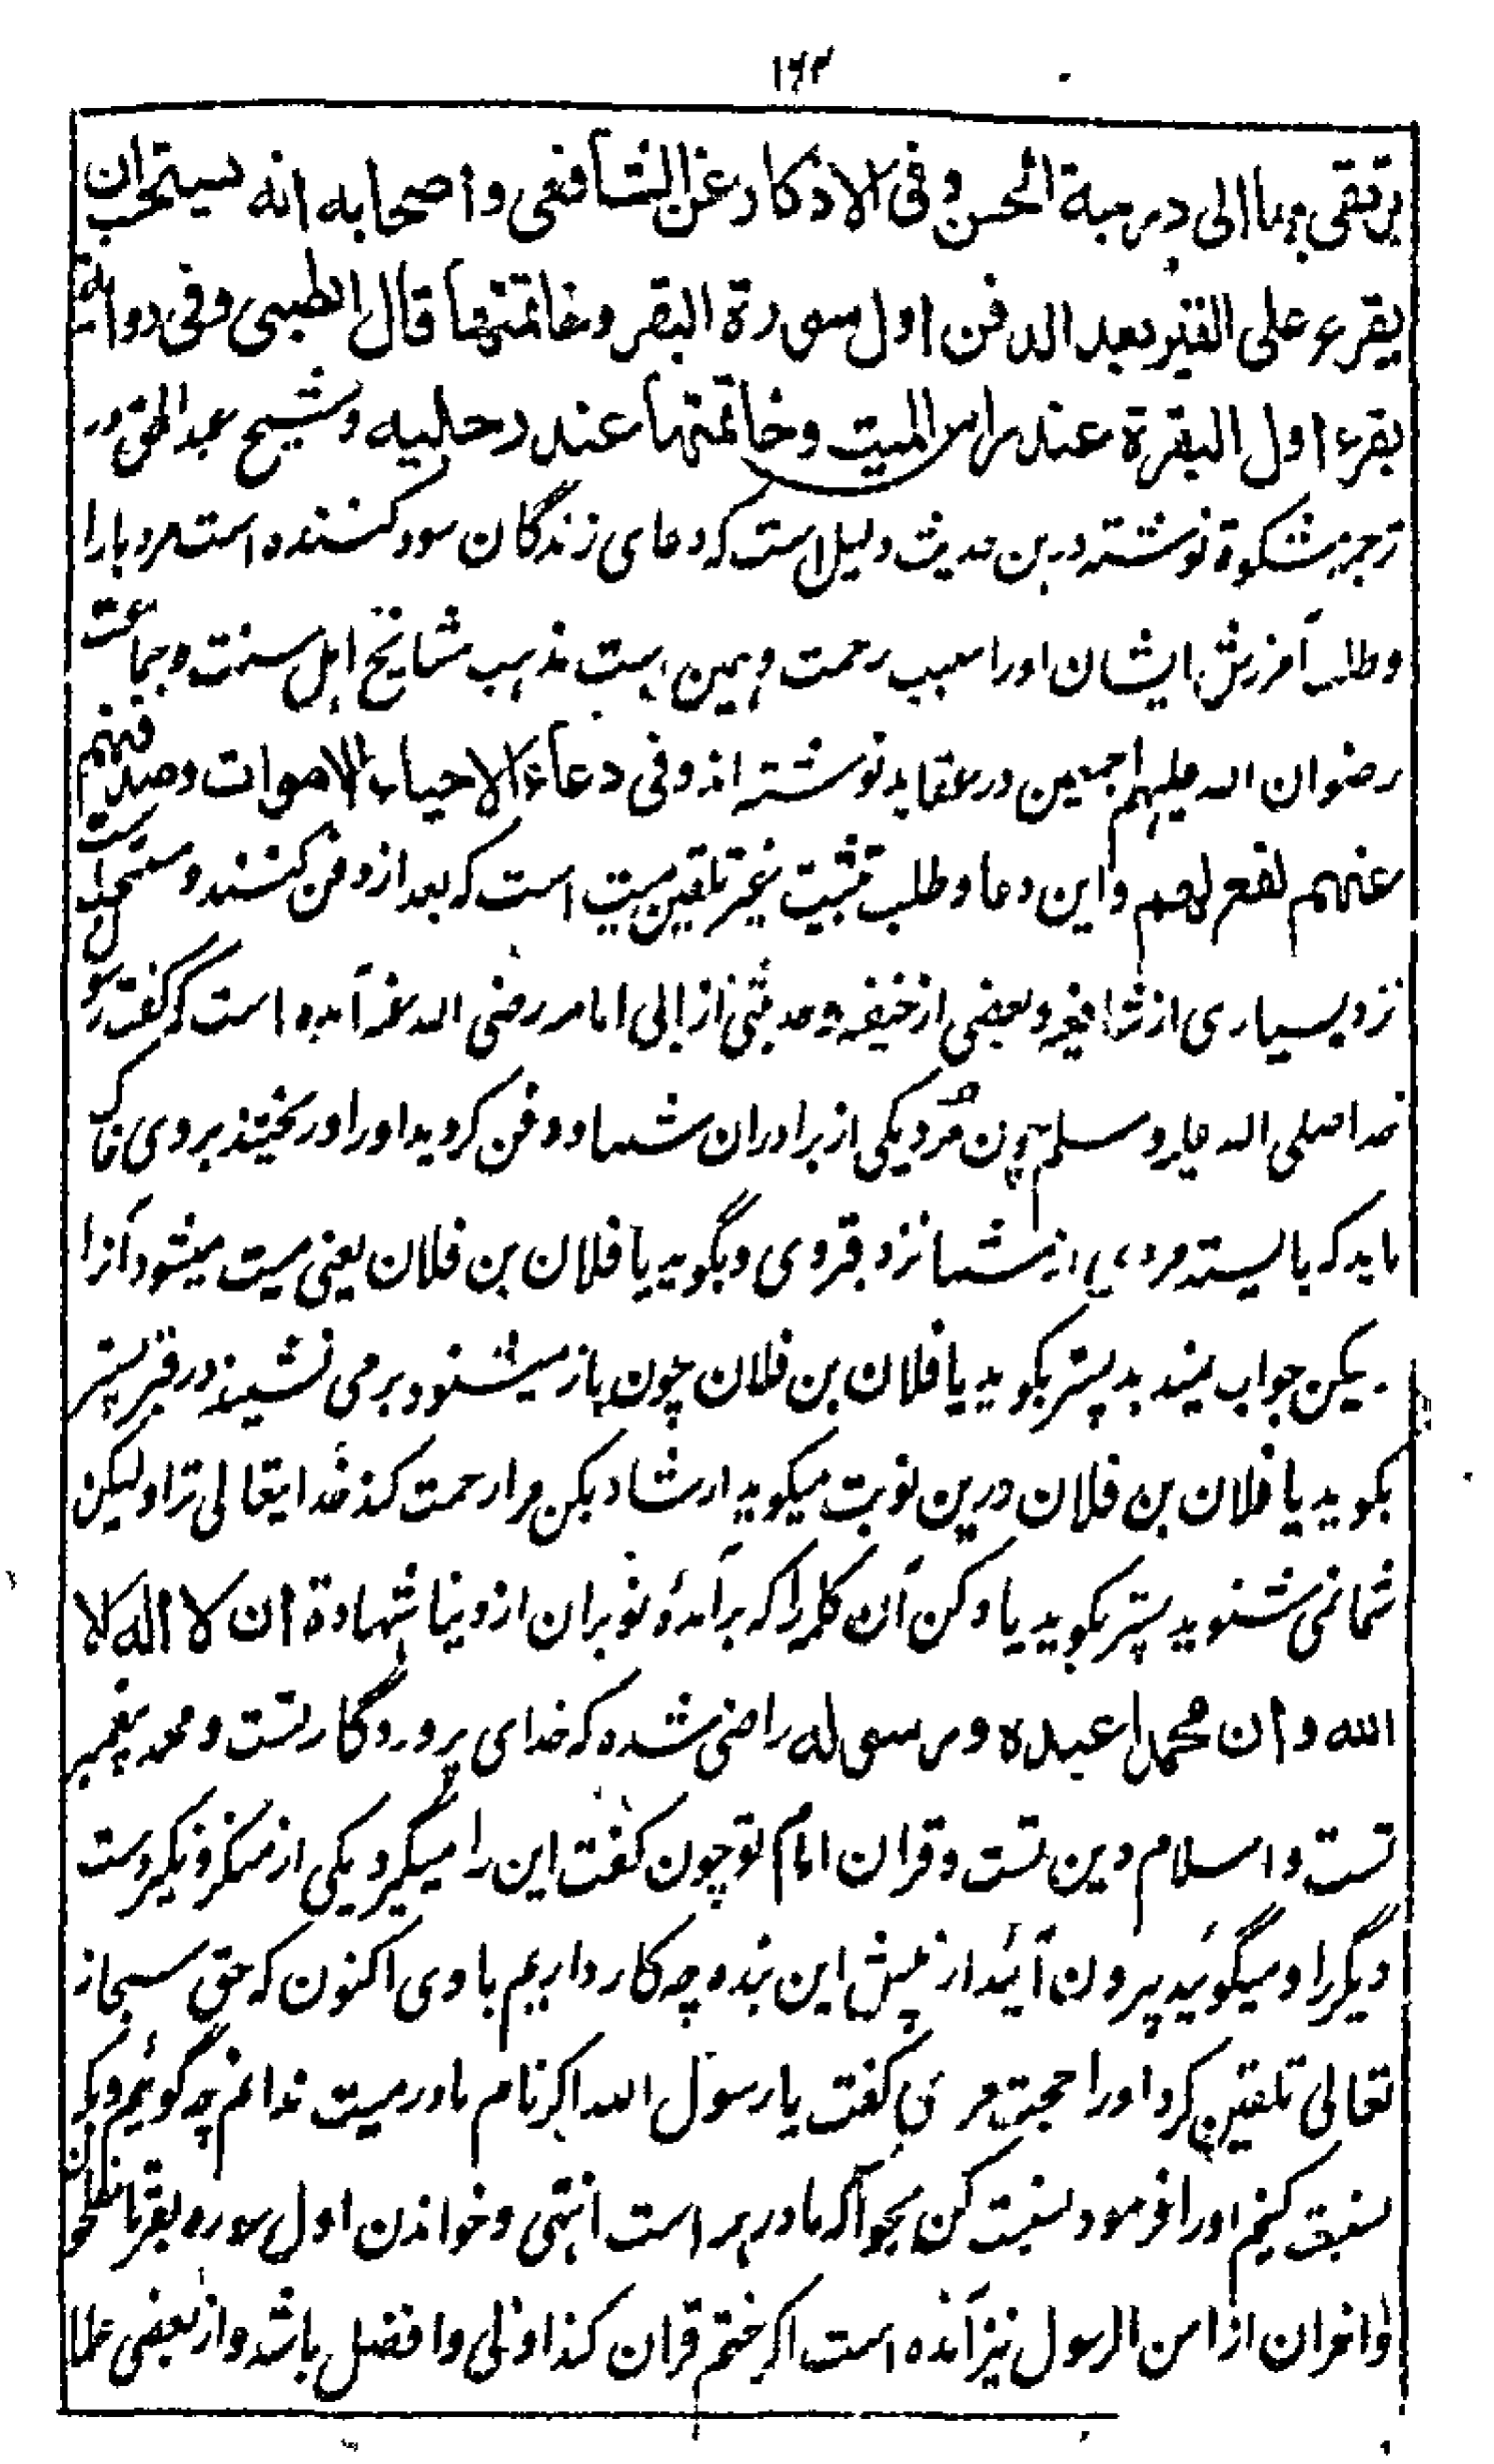 ۱۶۳
يرتقى بها الى درجة الحسن وفى الاذكار عن الشافعى واصحابه انه يستحب ان
يقرء على القبر بعد الدفن اول سورة البقر وخاتمتها قال الطيبى وفى رواية
يقرء اول البقرة عند راس الميت وخاتمتها عند رجليه وشیخ عبدالحق در
ترجمہ مشکوة نوشته درین حدیث دلیل است که دعای زندگان سود کننده است مردہا را
وطلب آمرزش ایشان اورا سبب رحمت وہمین است مذہب مشایخ اہل سنت وجماعت
رضوان الله علیہم اجمعین در عقاید نوشته اند وفى دعاء الاحياء للاموات وصدقتهم
عنهم نفع لهم واین دعا وطلب تثبیت غیر تلقین میت است که بعد از دفن کنند ومستحب است
نزد بسیاری از شافعیه وبعضی از حنفیه وحدیثی از ابی امامه رضی الله عنه آمده است که گفت رسول
خدا صلی الله علیه وسلم چون مرد یکی از برادران شما ودفن کردید اورا وریختید بروی خاک
باید که بایستد مردی از شما نزد قبر وی وبگوید یا فلان بن فلان یعنی میت میشنود آنرا
لیکن جواب نمیدہد پستر بگوید یا فلان بن فلان چون باز میشنود برمی نشیند در قبر پستر
بگوید یا فلان بن فلان درین نوبت میگوید ارشاد بکن مرا رحمت کند خدایتعالی ترا ولیکن
شما نمی شنوید پستر بگوید یاد کن آن کلمه را که برآمدۀ تو بران از دنیا شهادة ان لا اله الا
الله وان محمدا عبده ورسوله راضی شده که خدای پروردگار تست ومحمد پیغمبر
تست واسلام دین تست وقران امام تو چون گفت این را میگیرد یکی از منکر ونکیر دست
دیگر را ومیگوید بیرون آئید از پیش این بنده چه کار داریم با وی اکنون که حق سبحانه
تعالی تلقین کرد اورا حجت مردی گفت یا رسول الله اگر نام مادر میت ندانم چه گوئیم وبکه
نسبت کنیم اورا فرمود نسبت کن بحوا که مادر ہمه است انتہی وخواندن اول سوره بقر تا مفلحون
واخران از امن الرسول نیز آمده است اگر ختم قران کند اولی وافضل باشد واز بعضی علما